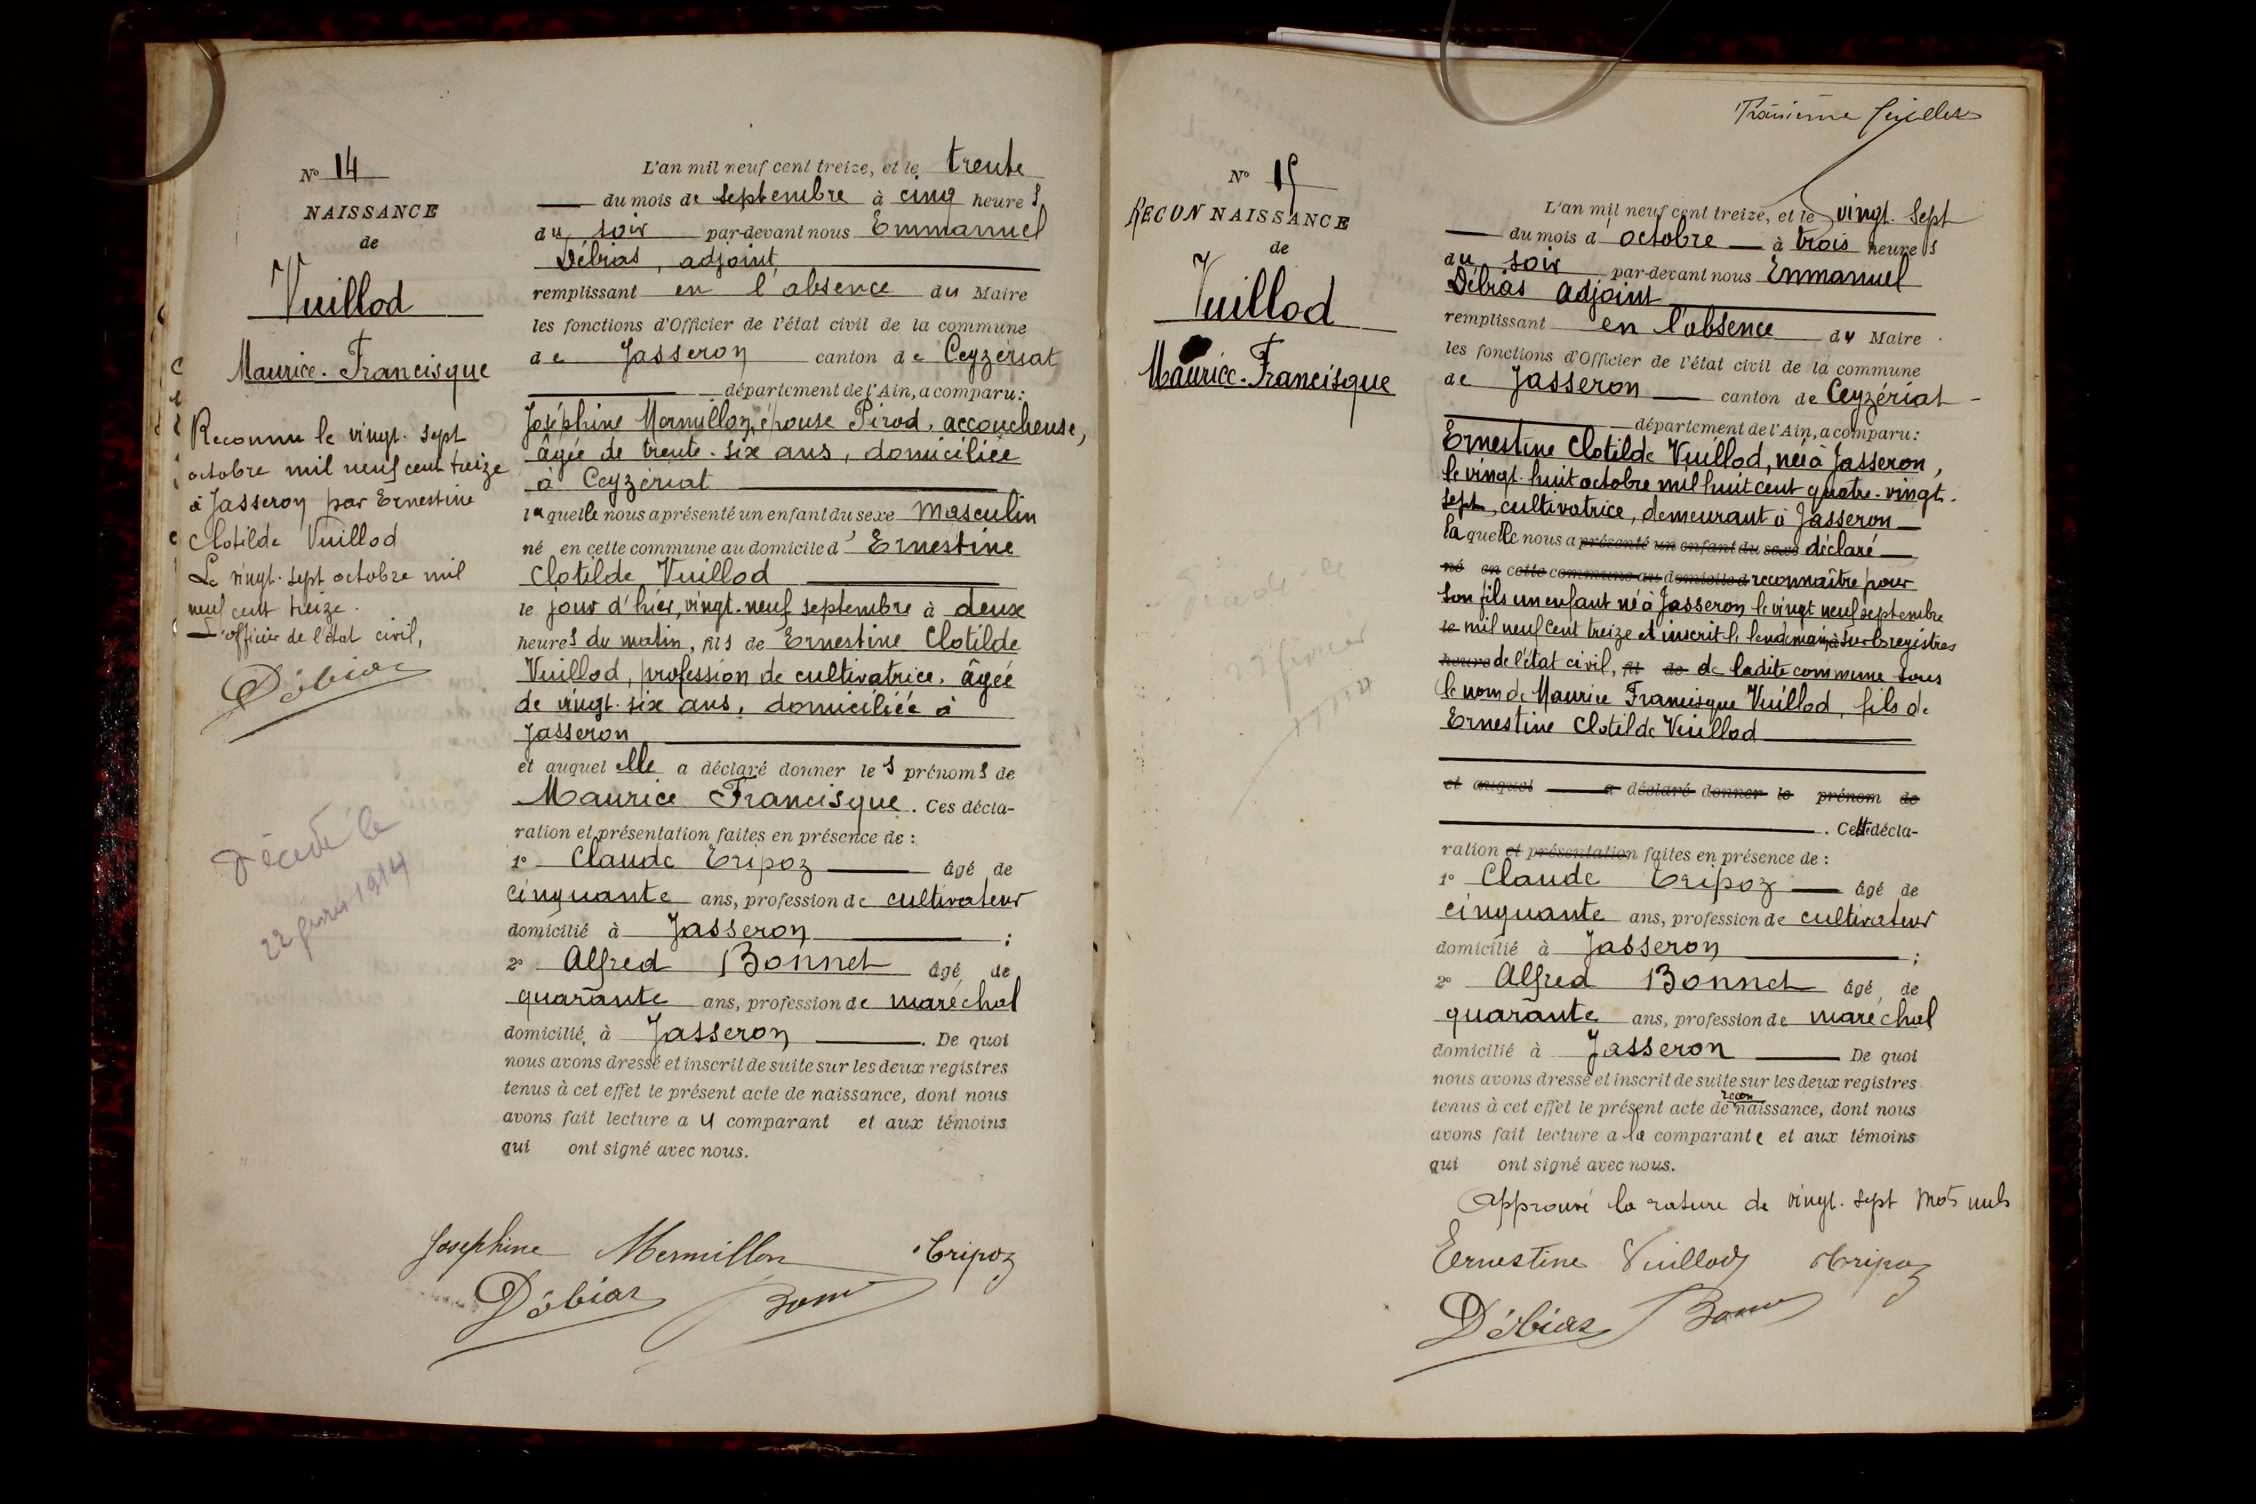 N° 14
NAISSANCE
de
Vuillod
Maurice. Francisque
Reconnu le vingt. sept
octobre mil neuf cent treize
à Jasseron par Ernestine
Clotilde Vuillod
Le vingt. sept octobre mil
neuf cent treize.
L'officier de l'état civil,
Débias
Décédé le
22 février 1914
L'an mil neuf cent treize, et le trente
du mois de septembre à cinq heures
du soir par-devant nous Emmanuel
Débias, adjoint
remplissant en l'absence du Maire
les fonctions d'Officier de l'état civil de la commune
de Jasseron canton de Ceyzériat
département de l'Ain, a comparu:
Joséphine Mermillon, épouse Pirod, accoucheuse,
âgée de trente. six ans, domiciliée
à Ceyzériat
laquelle nous a présenté un enfant du sexe Masculin
né en cette commune au domicile d'Ernestine
Clotilde Vuillod
le jour d'hier, vingt. neuf septembre à deux
heures du matin, fils de Ernestine Clotilde
Vuillod, profession de cultivatrice, âgée
de vingt. six ans, domiciliée à
Jasseron
et auquel elle a déclaré donner les prénoms de
Maurice Francisque. Ces décla-
ration et présentation faites en présence de:
1° Claude Tripoz âgé de
cinquante ans, profession de cultivateur
domicilié à Jasseron ;
2° Alfred Bonnet âgé de
quarante ans, profession de maréchal
domicilié à Jasseron. De quoi
nous avons dressé et inscrit de suite sur les deux registres
tenus à cet effet le présent acte de naissance, dont nous
avons fait lecture au comparant et aux témoins
qui ont signé avec nous.
Josephine Mermillon Tripoz
Débias
Troisième
N° 15
RECONNAISSANCE
de
Vuillod
Maurice. Francisque
Décédé le
22 février
L'an mil neuf cent treize, et le vingt. sept
du mois d octobre à trois heures
du soir par-devant nous Emmanuel
Débias adjoint
remplissant en l'absence du Maire
les fonctions d'Officier de l'état civil de la commune
de Jasseron canton de Ceyzériat
département de l'Ain, a comparu:
Ernestine Clotilde Vuillod, née à Jasseron,
le vingt. huit octobre mil huit cent quatre-vingt-
sept, cultivatrice, demeurant à Jasseron
laquelle nous a présenté un enfant du sexe déclaré
né en cette commune au domicile d reconnaître pour
son fils un enfant né à Jasseron le vingt neuf septembre
le mil neuf cent treize et inscrit le lendemain à sur les registres
heure de l'état civil, fil de de ladite commune sous
le nom de Maurice Francisque Vuillod, fils de
Ernestine Clotilde Vuillod
et auquel a déclaré donner le prénom de
. Cette décla-
ration et présentation faites en présence de:
1° Claude Tripoz âgé de
cinquante ans, profession de cultivateur
domicilié à Jasseron ;
2° Alfred Bonnet âgé de
quarante ans, profession de maréchal
domicilié à Jasseron De quoi
nous avons dressé et inscrit de suite sur les deux registres
tenus à cet effet le présent acte de reconnaissance, dont nous
avons fait lecture a la comparante et aux témoins
qui ont signé avec nous.
Approuvé la rature de vingt. sept mots nuls
Ernestine Vuillod Tripoz
Débias